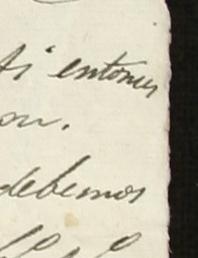 si entonces
on.
debemos